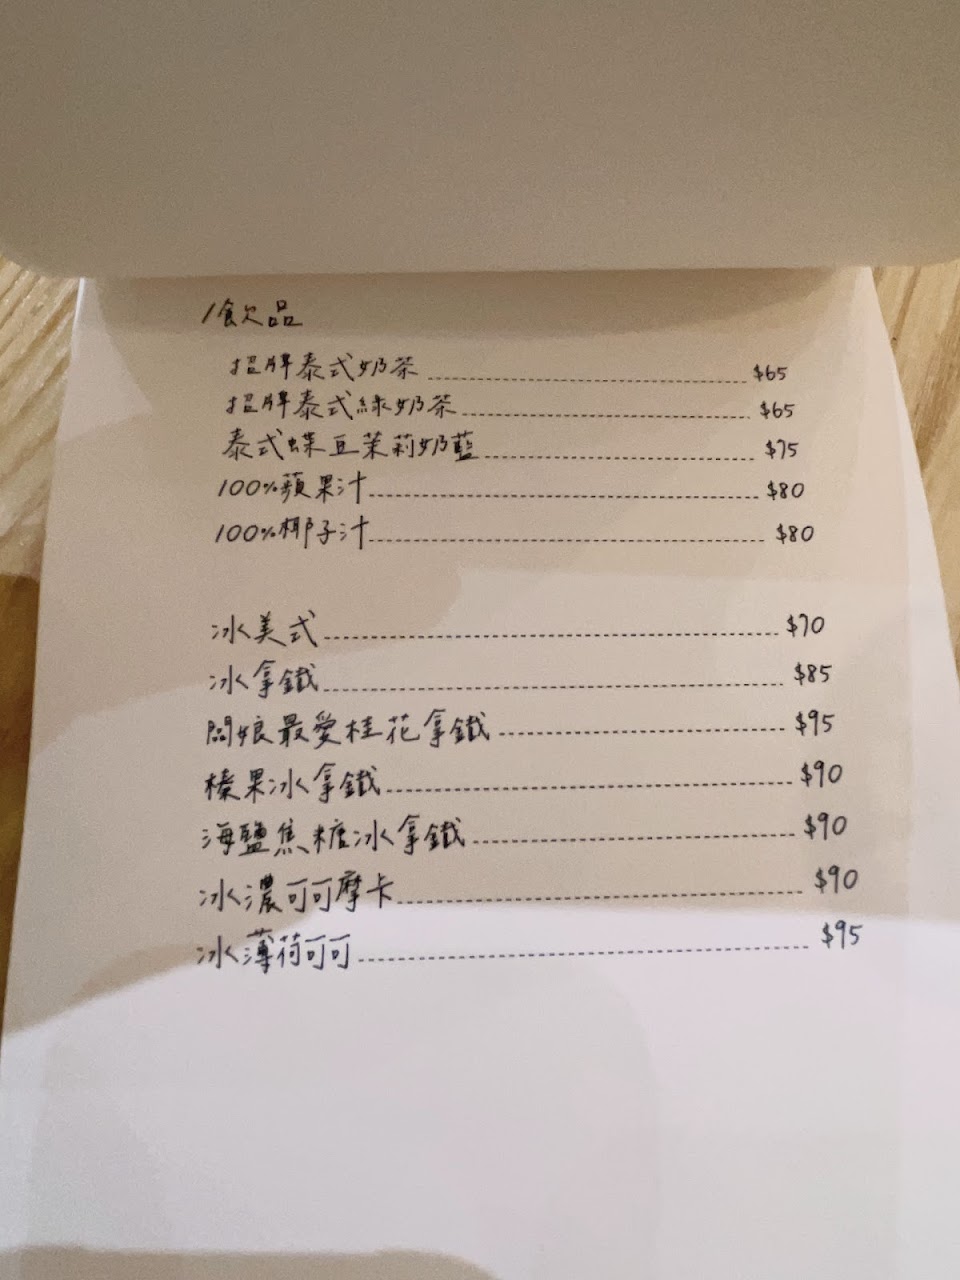 /飲品
招牌泰式奶茶 $65
招牌泰式綠奶茶 $65
泰式蝶豆茉莉奶藍 $75
100%蘋果汁 $80
100%椰子汁 $80
冰美式 $70
冰拿鐵 $85
闆娘最愛桂花拿鐵 $95
榛果冰拿鐵 $90
海鹽焦糖冰拿鐵 $90
冰濃可可摩卡 $90
冰薄荷可可 $95